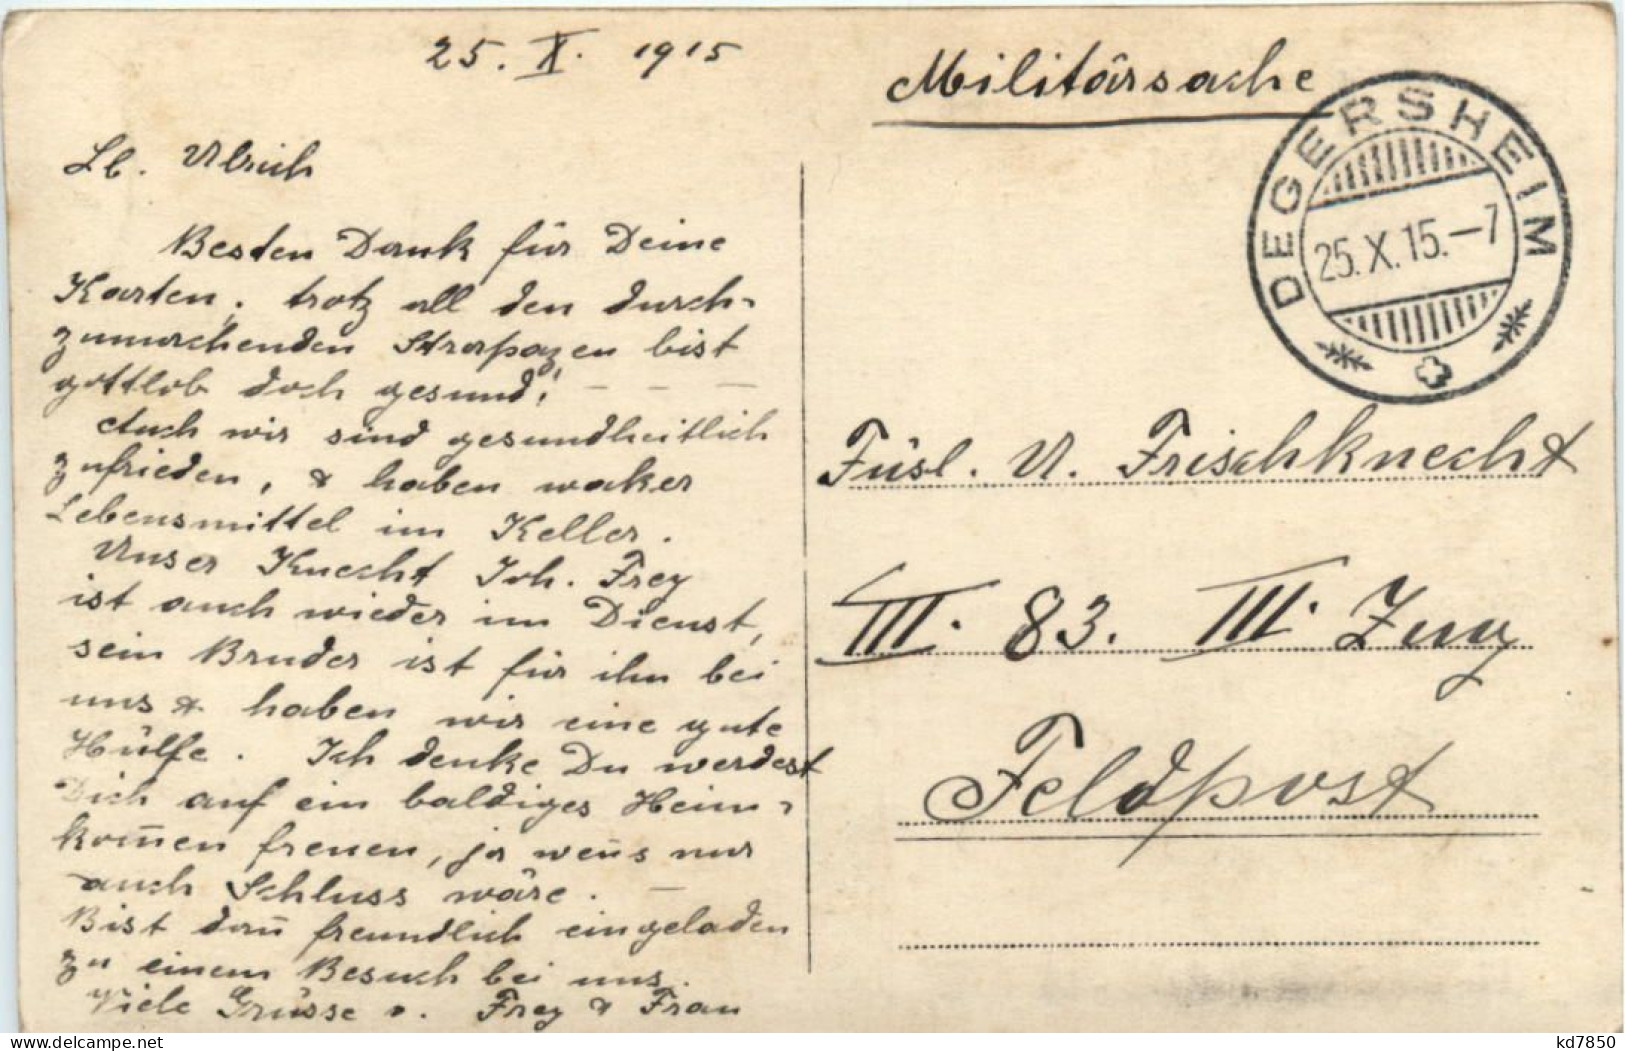 25. X. 1915
Militärsache
DEGERSHEIM
25.X.15.-7
Lb. Ulrich
Besten Dank für Deine
Karten, trotz all den durch-
zumachenden Strapazen bist
gottlob doch gesund! - - -
Auch wir sind gesundheitlich
zufrieden, & haben waker
Lebensmittel im Keller.
Unser Knecht Joh. Frey
ist auch wieder im Dienst,
sein Bruder ist für ihn bei
uns & haben wir eine gute
Hülfe. Ich denke Du werdest
Dich auf ein baldiges Heim-
kom̅en freuen, ja wen̅s nur
auch Schluss wäre. -
Bist dan̅ freundlich eingeladen
zu einem Besuch bei uns.
Viele Grüsse v. Frey & Frau
Füsl. U. Frischknecht
III. 83. III. Zug
Feldpost
kd7850